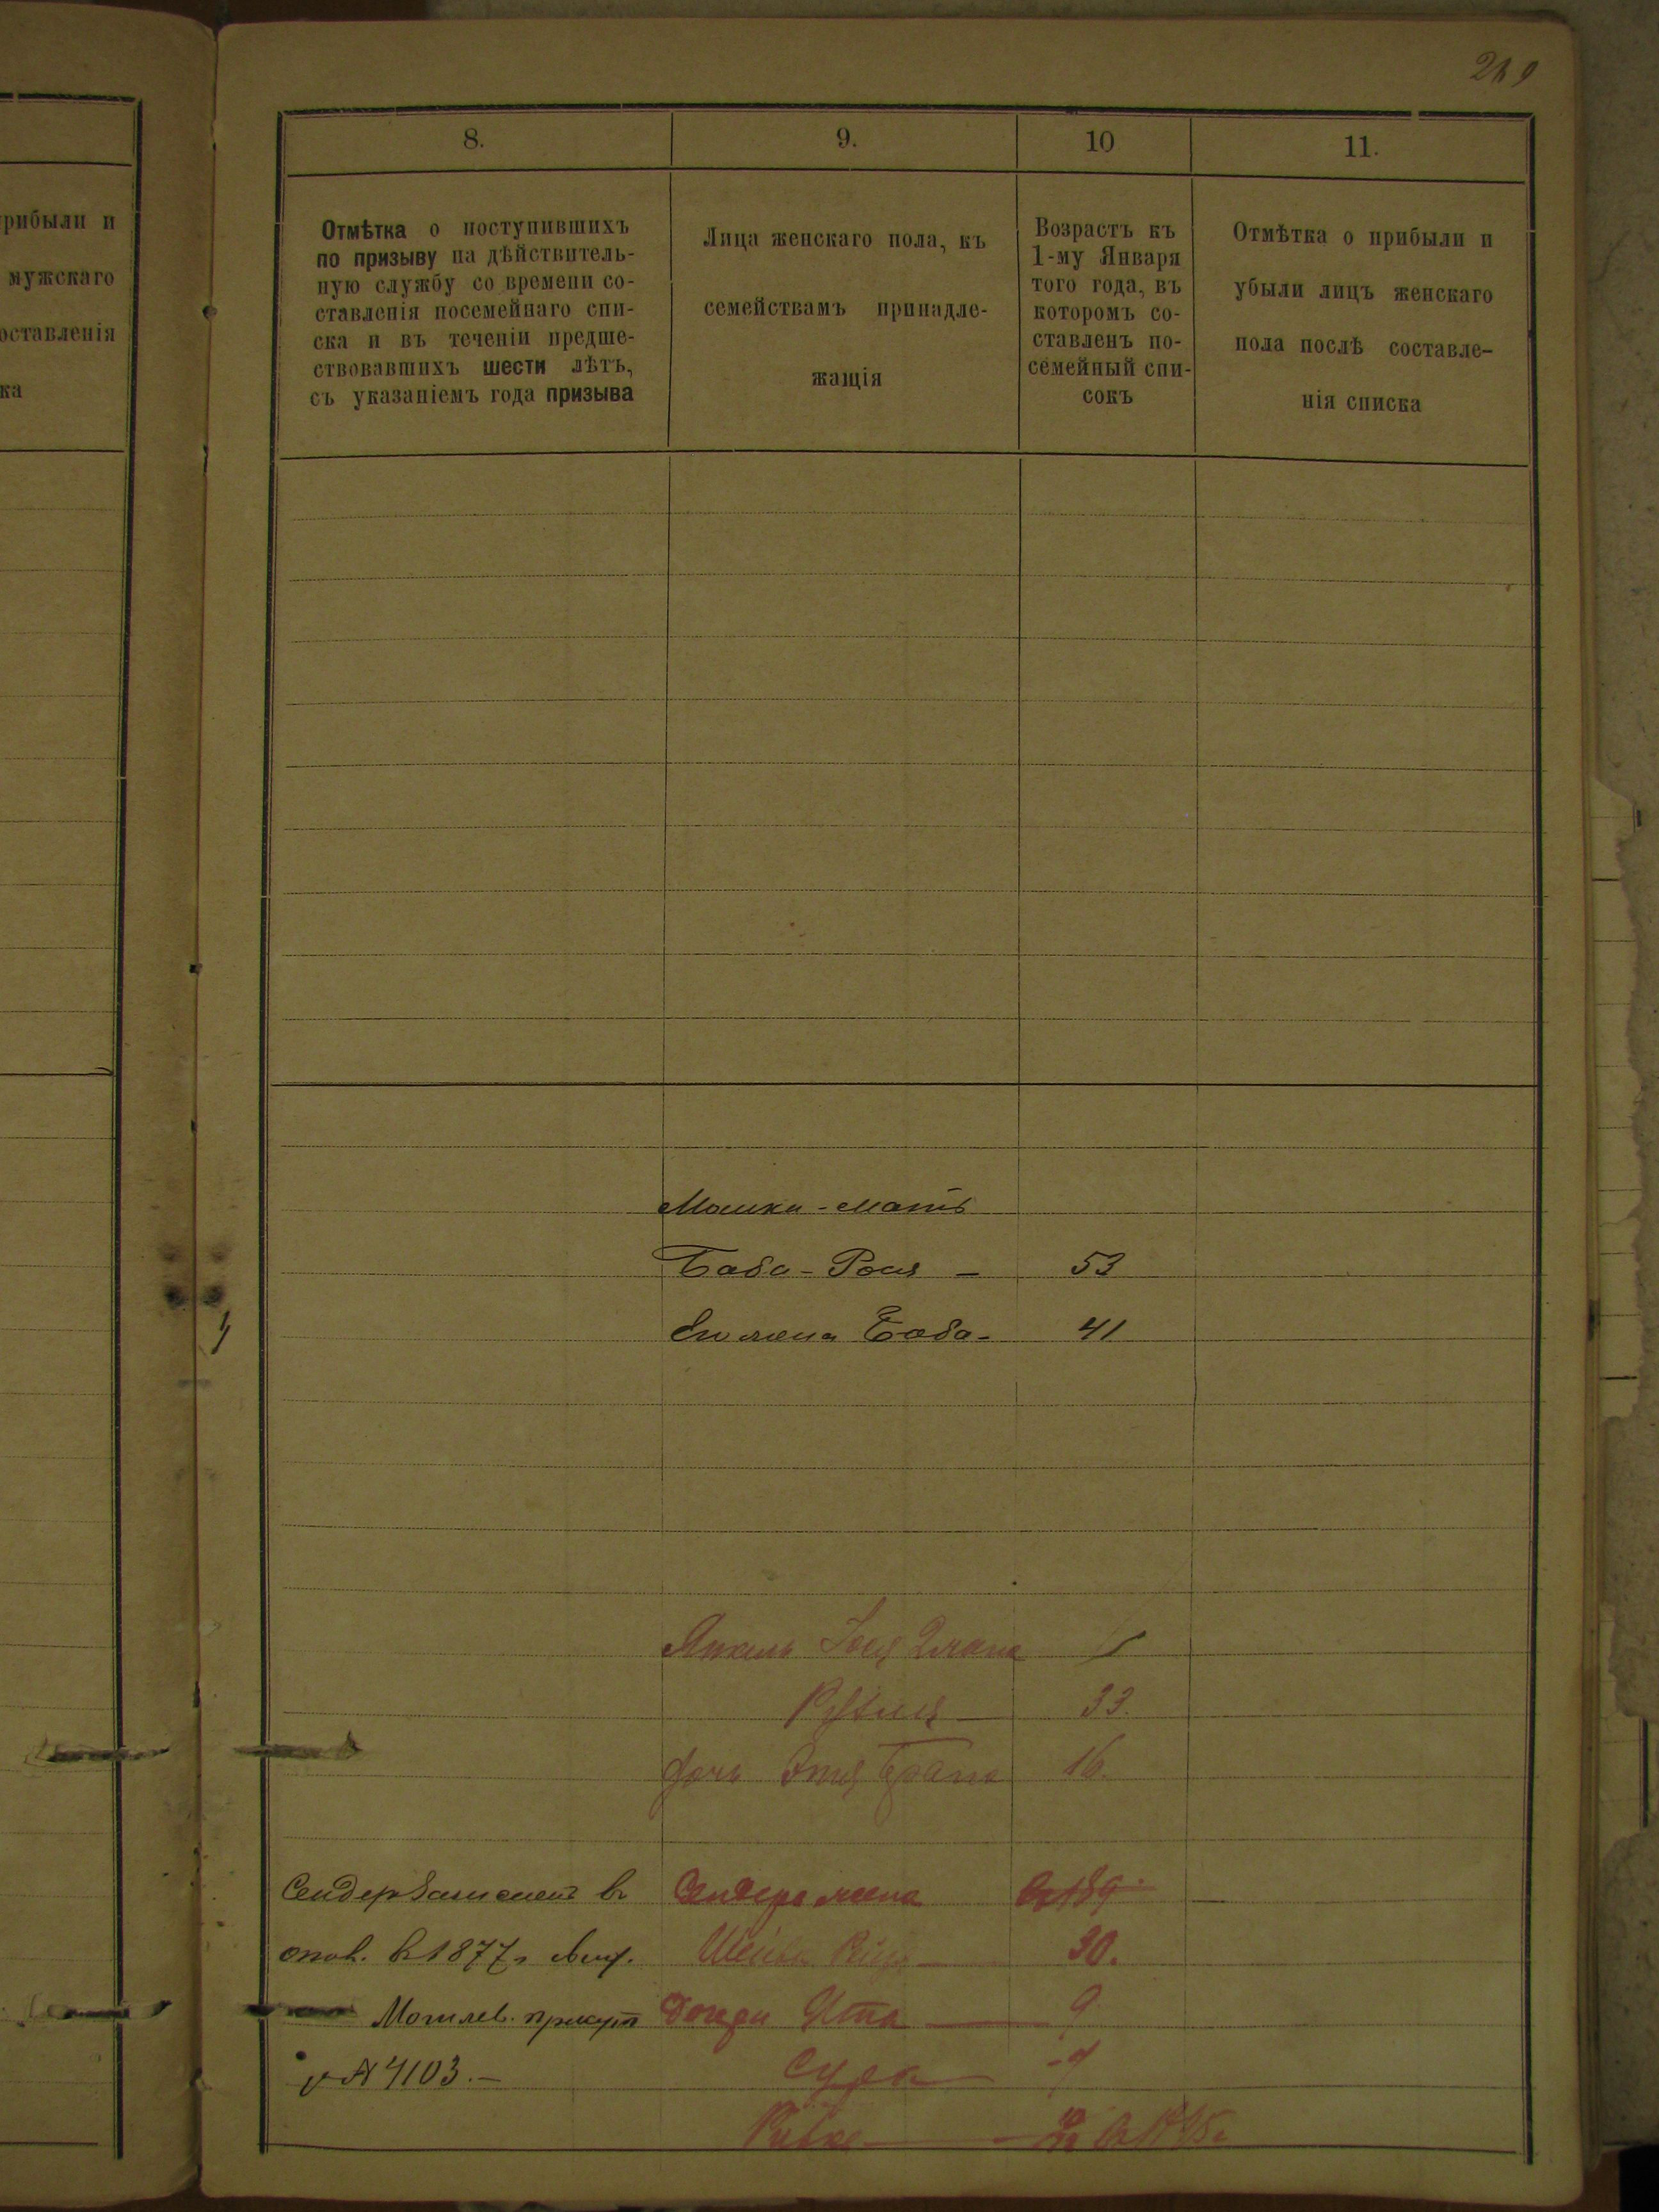 рибыли и
мужскаго
оставленія
ка
8.
9.
10
11.
Отмѣтка о поступившихъ
по призыву на дѣйствитель-
ную службу со времени со-
ставленія посемейнаго спи-
ска и въ теченіи предше-
ствовавшихъ шести лѣтъ,
съ указаніемъ года призыва
Лица женскаго пола, къ
семействамъ принадле-
жащія
Возрастъ къ
1-му Января
того года, въ
которомъ со-
ставленъ по-
семейный спи-
сокъ
Отмѣтка о прибыли и
убыли лицъ женскаго
пола послѣ составле-
нія списка
Мошки - мать
Баба - Рося - 53
жена Баба - 41
33.
дочь Этя 16.
Сендер въ Сендера жена
1877 30.
Могилев. присут дочери Итта 9
№ 4103. - Сура
Ривка